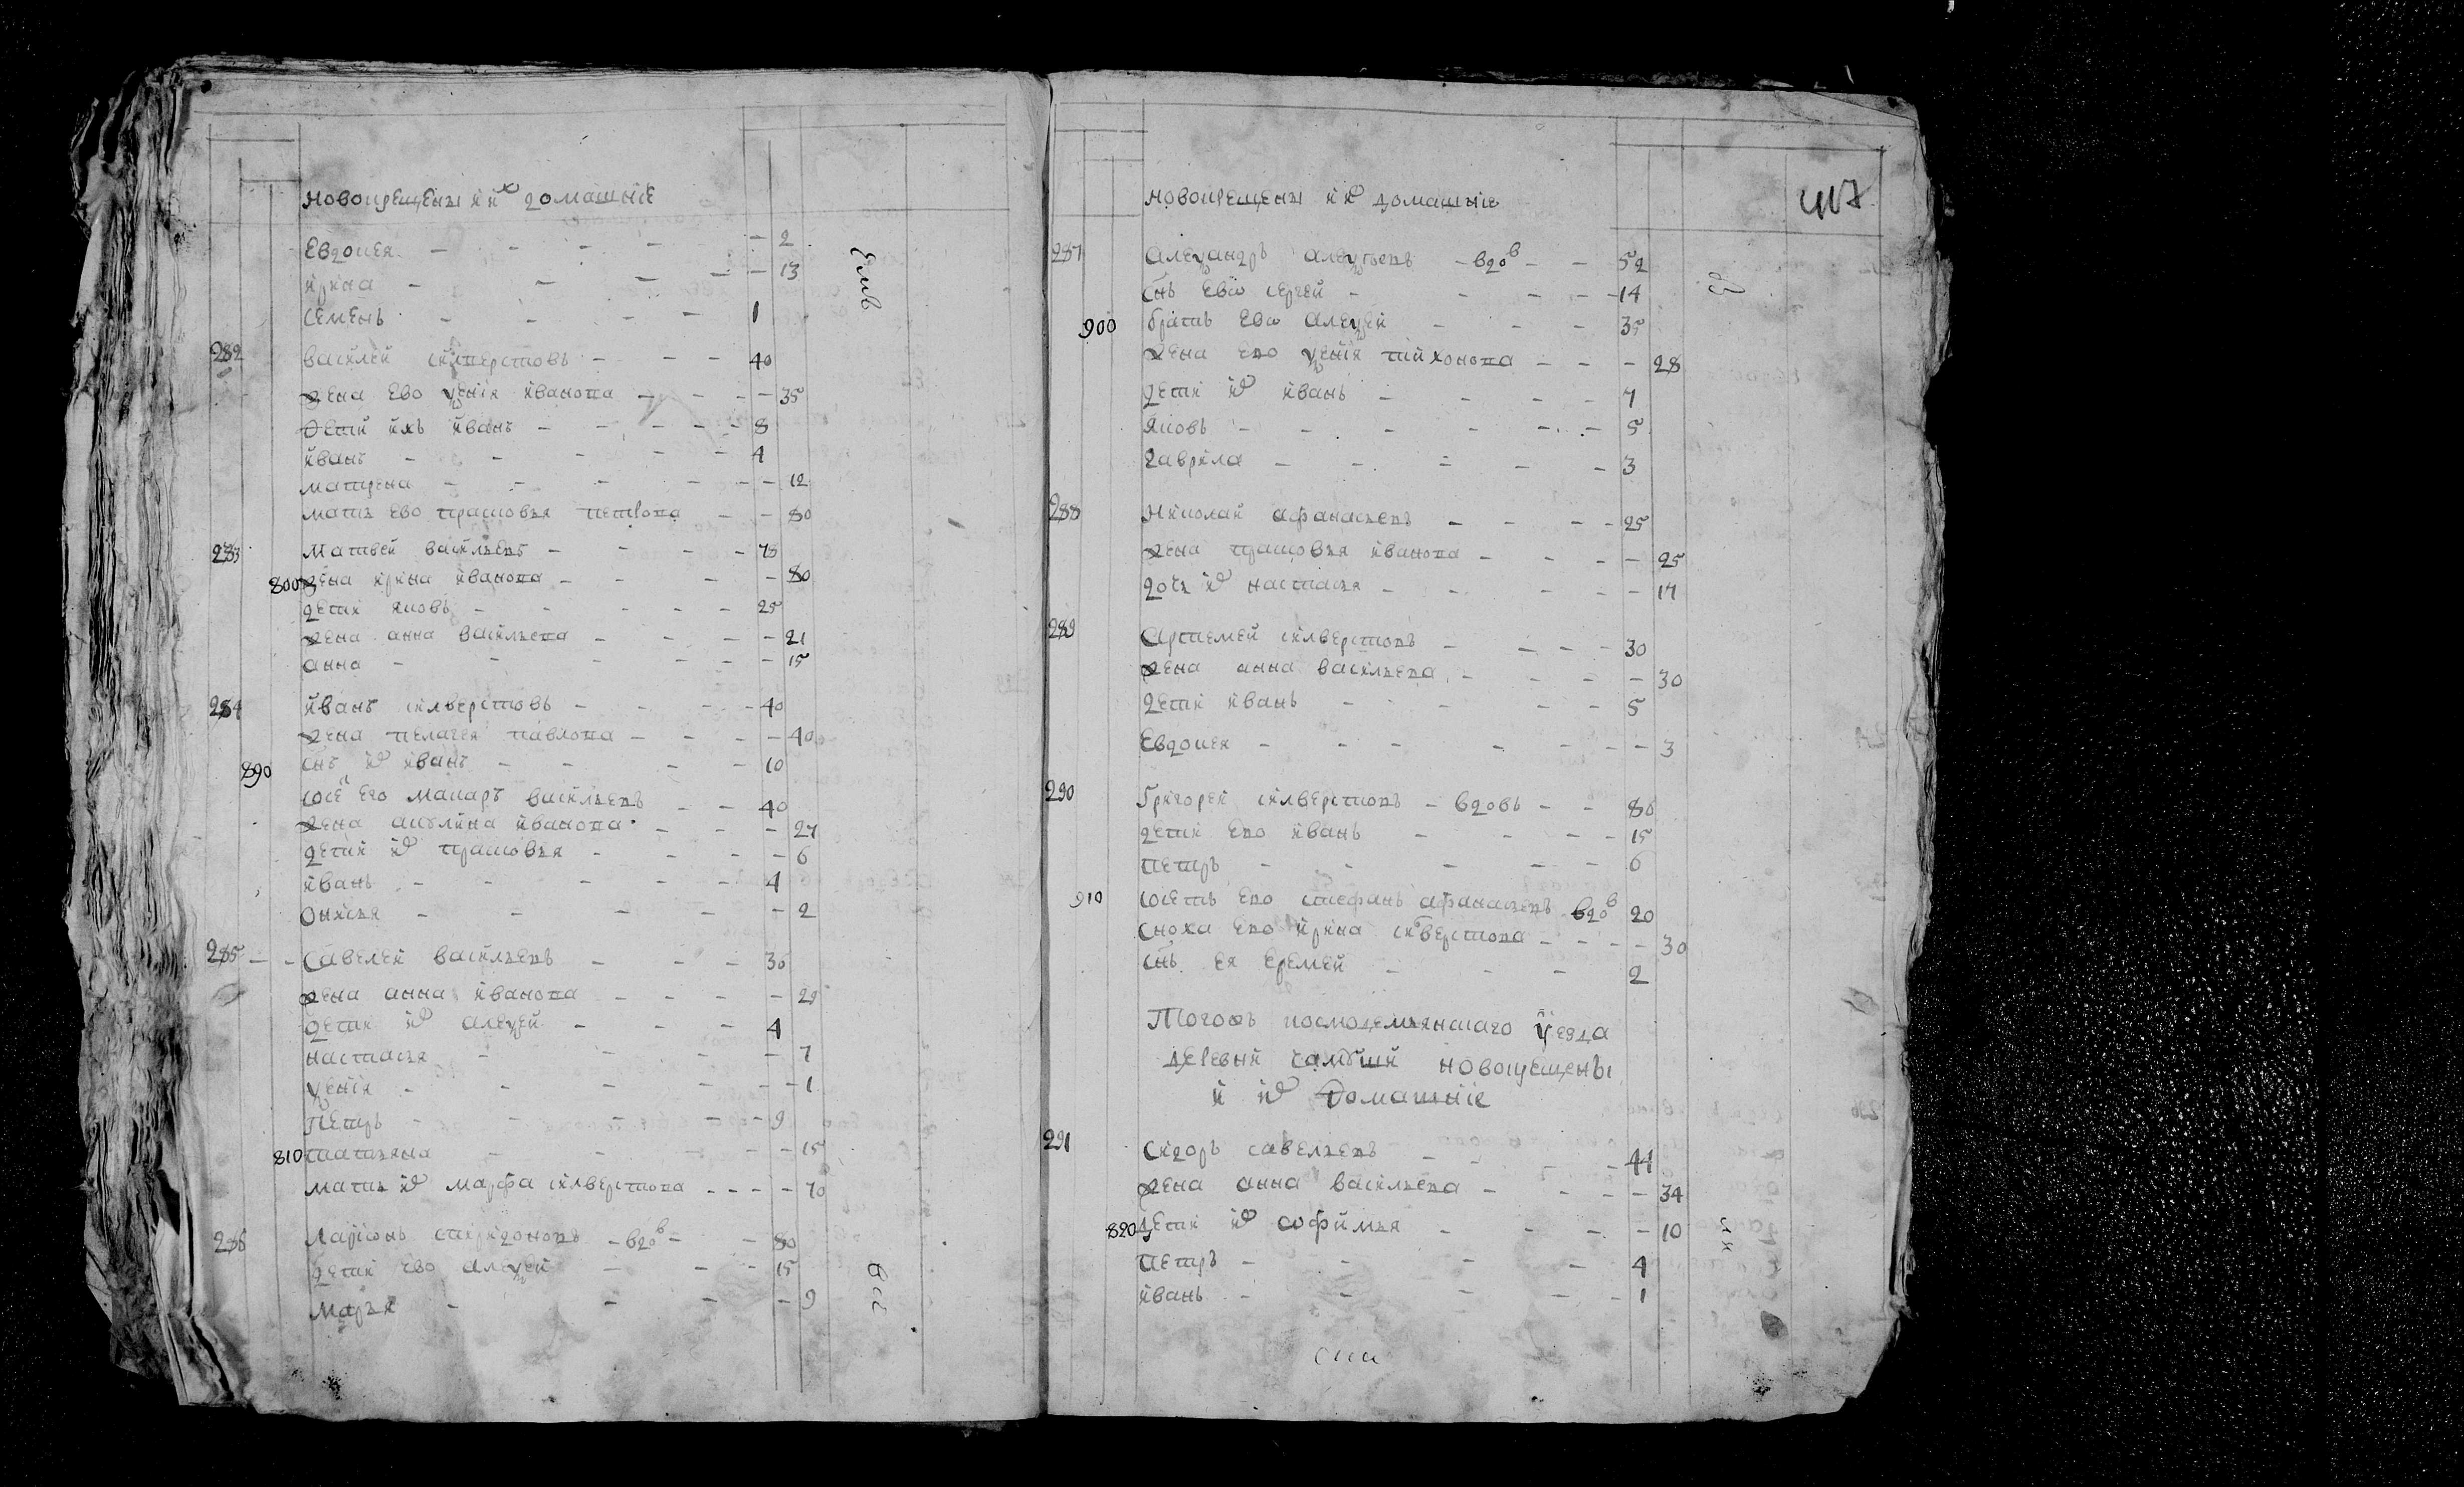 новокрещены и их домашние
Евдокея - 2
Ирина - 13
Семенъ - 1
282 Василей Силверстовъ - 40
жена ево Ксения Иванова - 35
дети ихъ Иванъ - 8
Иванъ - 4
Матрена - 12
мать ево Прасковья Петрова - 80
283 Матвей Васильевъ - 75
800 жена Ирина Иванова - 80
дети Яковъ - 25
жена Анна Васильева - 21
Анна - 15
284 Иванъ Силверстовъ - 40
жена Пелагея Павлова - 40
890 снъ их Иванъ - 10
его Макаръ Васильевъ - 40
жена Акулина Иванова - 27
дети их Прасковья - 6
Иванъ - 4
- 2
285 Савелей Васильевъ - 30
жена Анна Иванова - 29
дети их Алеѯей - 4
Настасья - 7
Ѯения - 1
Петръ - 9
810 Татьяна - 15
мать их Марфа Силверстова - 70
286 Лариѡнъ Спиридоновъ - вдов - 80
дети ево Алеѯей - 15
Марья - 9
новокрещены и их домашние
417
287 Алеѯандръ Алеѯеевъ - вдов - 52
снъ евѡ Сергей - 14
900 братъ евѡ Алеѯей - 35
жена ево Ѯения Тихонова - 28
дети их Иванъ - 7
Яковъ - 5
Гаврила - 3
288 Николай Афанасьевъ - 25
жена Прасковья Иванова - 25
дочь их Настасья - 17
289 Артемей Силверстовъ - 30
жена Анна Васильева - 30
дети Иванъ - 5
Евдокея - 3
290 Григорей Силверстовъ - вдовъ - 80
дети ево Иванъ - 15
Петръ - 6
910 ево Стефанъ Афанасьевъ вдов 20
сноха ево Ирина Силверстова - 30
снъ ея Еремей - 2
Тогожъ Космодемьянскаго уезда
деревни новокрещены
и их домашние
291 Сидоръ Савельевъ - 41
жена Анна Васильева - 34
820 дети их Ѡфимья - 10
Петръ - 4
Иванъ - 1